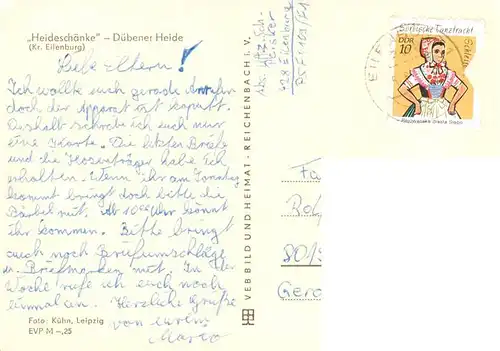 „Heideschänke" – Dübener Heide
(Kr. Eilenburg)
Liebe Eltern!
Ich wollte euch gerade Anrufen
doch der Apparat ist kaputt.
Deshalb schreibe ich euch nur
eine Karte. Die letzten Briefe
und die Hosenträger habe ich
erhalten. Wenn ihr am Sonntag
kommt bringt doch bitte die
Bärbel mit. Ab 10 Uhr könnt
ihr kommen. Bitte bringt
auch noch Briefumschläge
u. Briefmarken mit. In der
Woche rufe ich euch noch
einmal an. Herzliche Grüße
von eurem
Marco
Foto: Kühn, Leipzig
EVP M –,25
VEB BILD UND HEIMAT · REICHENBACH I. V.
Abs.
728 Eilenburg
PSF
Sorbische Tanztracht
Schleife
DDR
10
EILEN
Fa
Rol
801
Gero